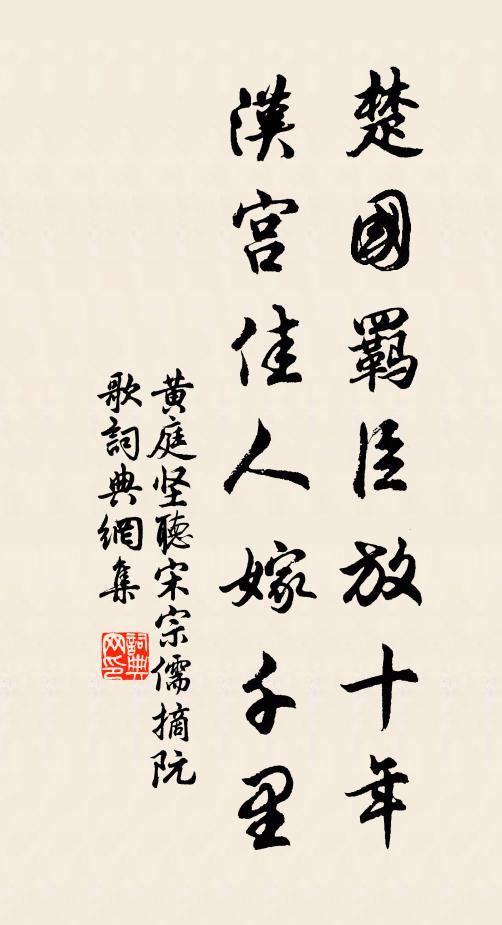 楚國羈臣放十年
漢宮佳人嫁千里
黄庭坚聽宋宗儒摘阮
歌詞典網集
詞典
网印